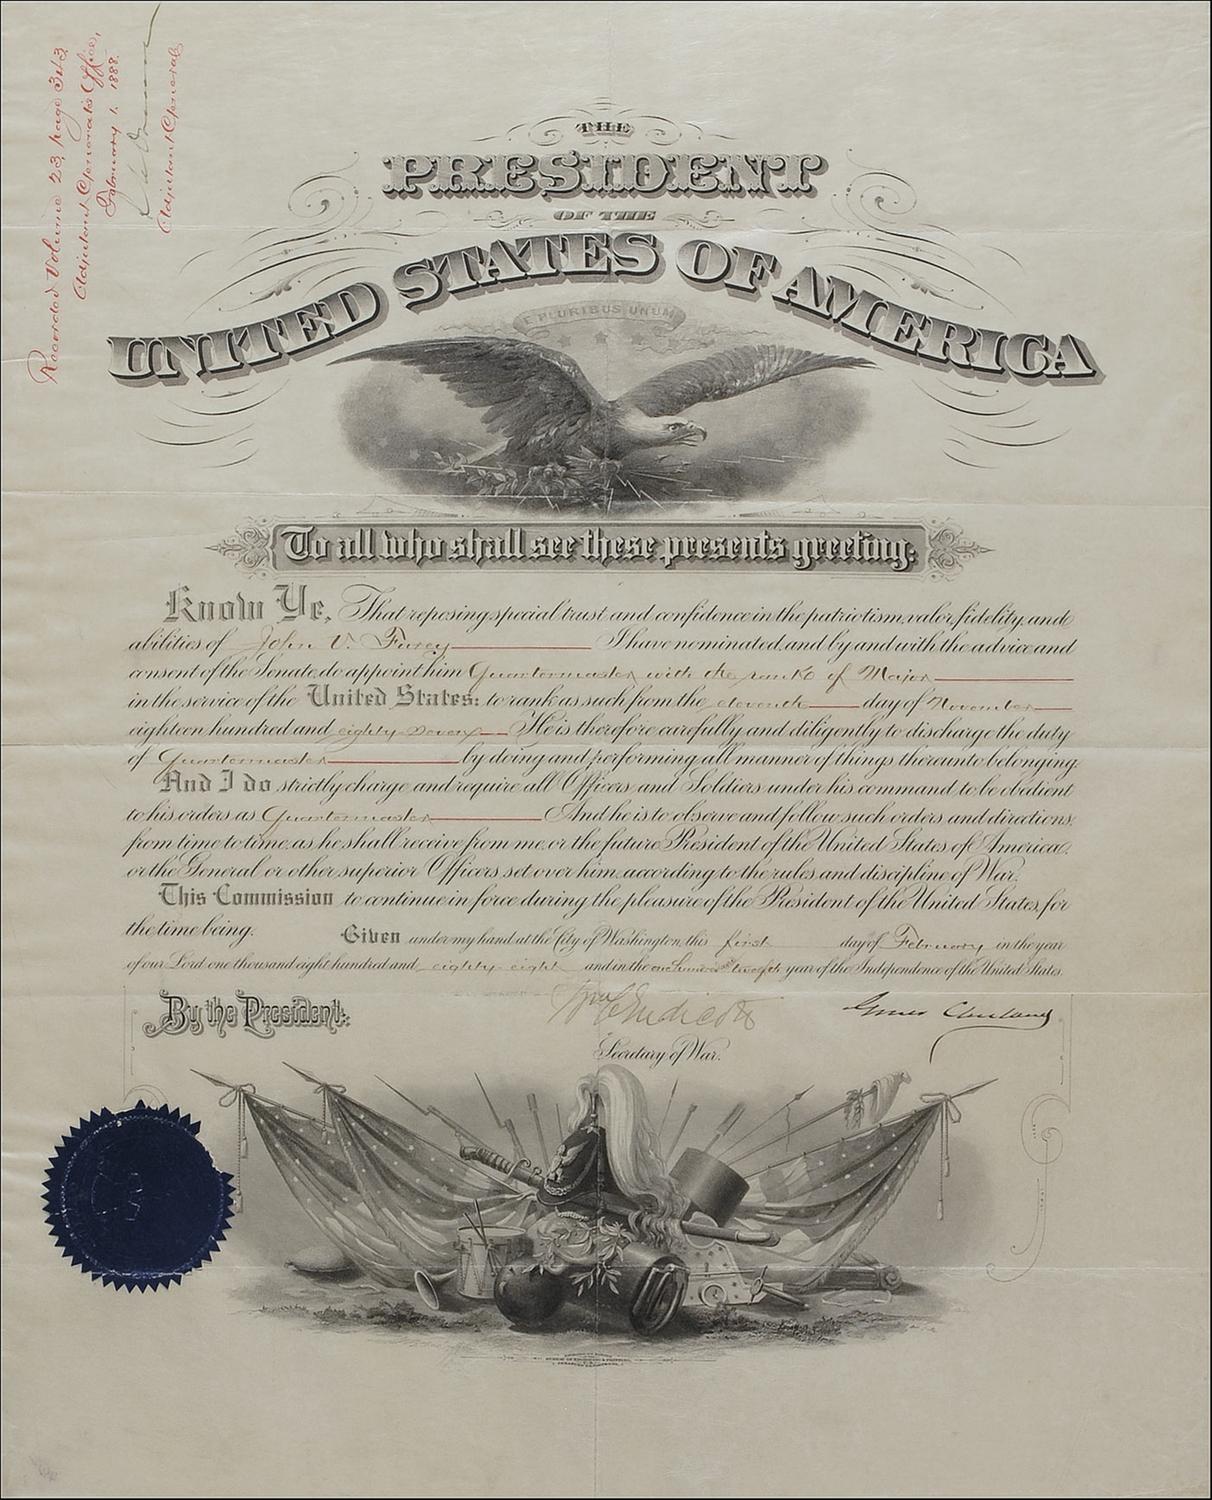 Recorded Volume 23, page 343
Adjutant General's Office,
February 1. 1888.
Adjutant General
THE
PRESIDENT
OF THE
UNITED STATES OF AMERICA
E PLURIBUS UNUM
To all who shall see these presents greeting:
Know Ye, That reposing special trust and confidence in the patriotism, valor, fidelity, and
abilities of John V. Furey I have nominated, and by and with the advice and
consent of the Senate, do appoint him Quartermaster with the rank of Major
in the service of the United States: to rank as such from the eleventh day of November
eighteen hundred and eighty-seven. He is therefore carefully and diligently to discharge the duty
of Quartermaster by doing and performing all manner of things thereunto belonging.
And I do strictly charge and require all Officers and Soldiers under his command to be obedient
to his orders as Quartermaster And he is to observe and follow such orders and directions,
from time to time, as he shall receive from me, or the future President of the United States of America,
or the General or other superior Officers set over him, according to the rules and discipline of War.
This Commission to continue in force during the pleasure of the President of the United States, for
the time being. Given under my hand at the City of Washington, this first day of February in the year
of our Lord one thousand eight hundred and eighty-eight and in the one hundred and twelfth year of the Independence of the United States.
By the President: Wm C Endicott Grover Cleveland
Secretary of War.